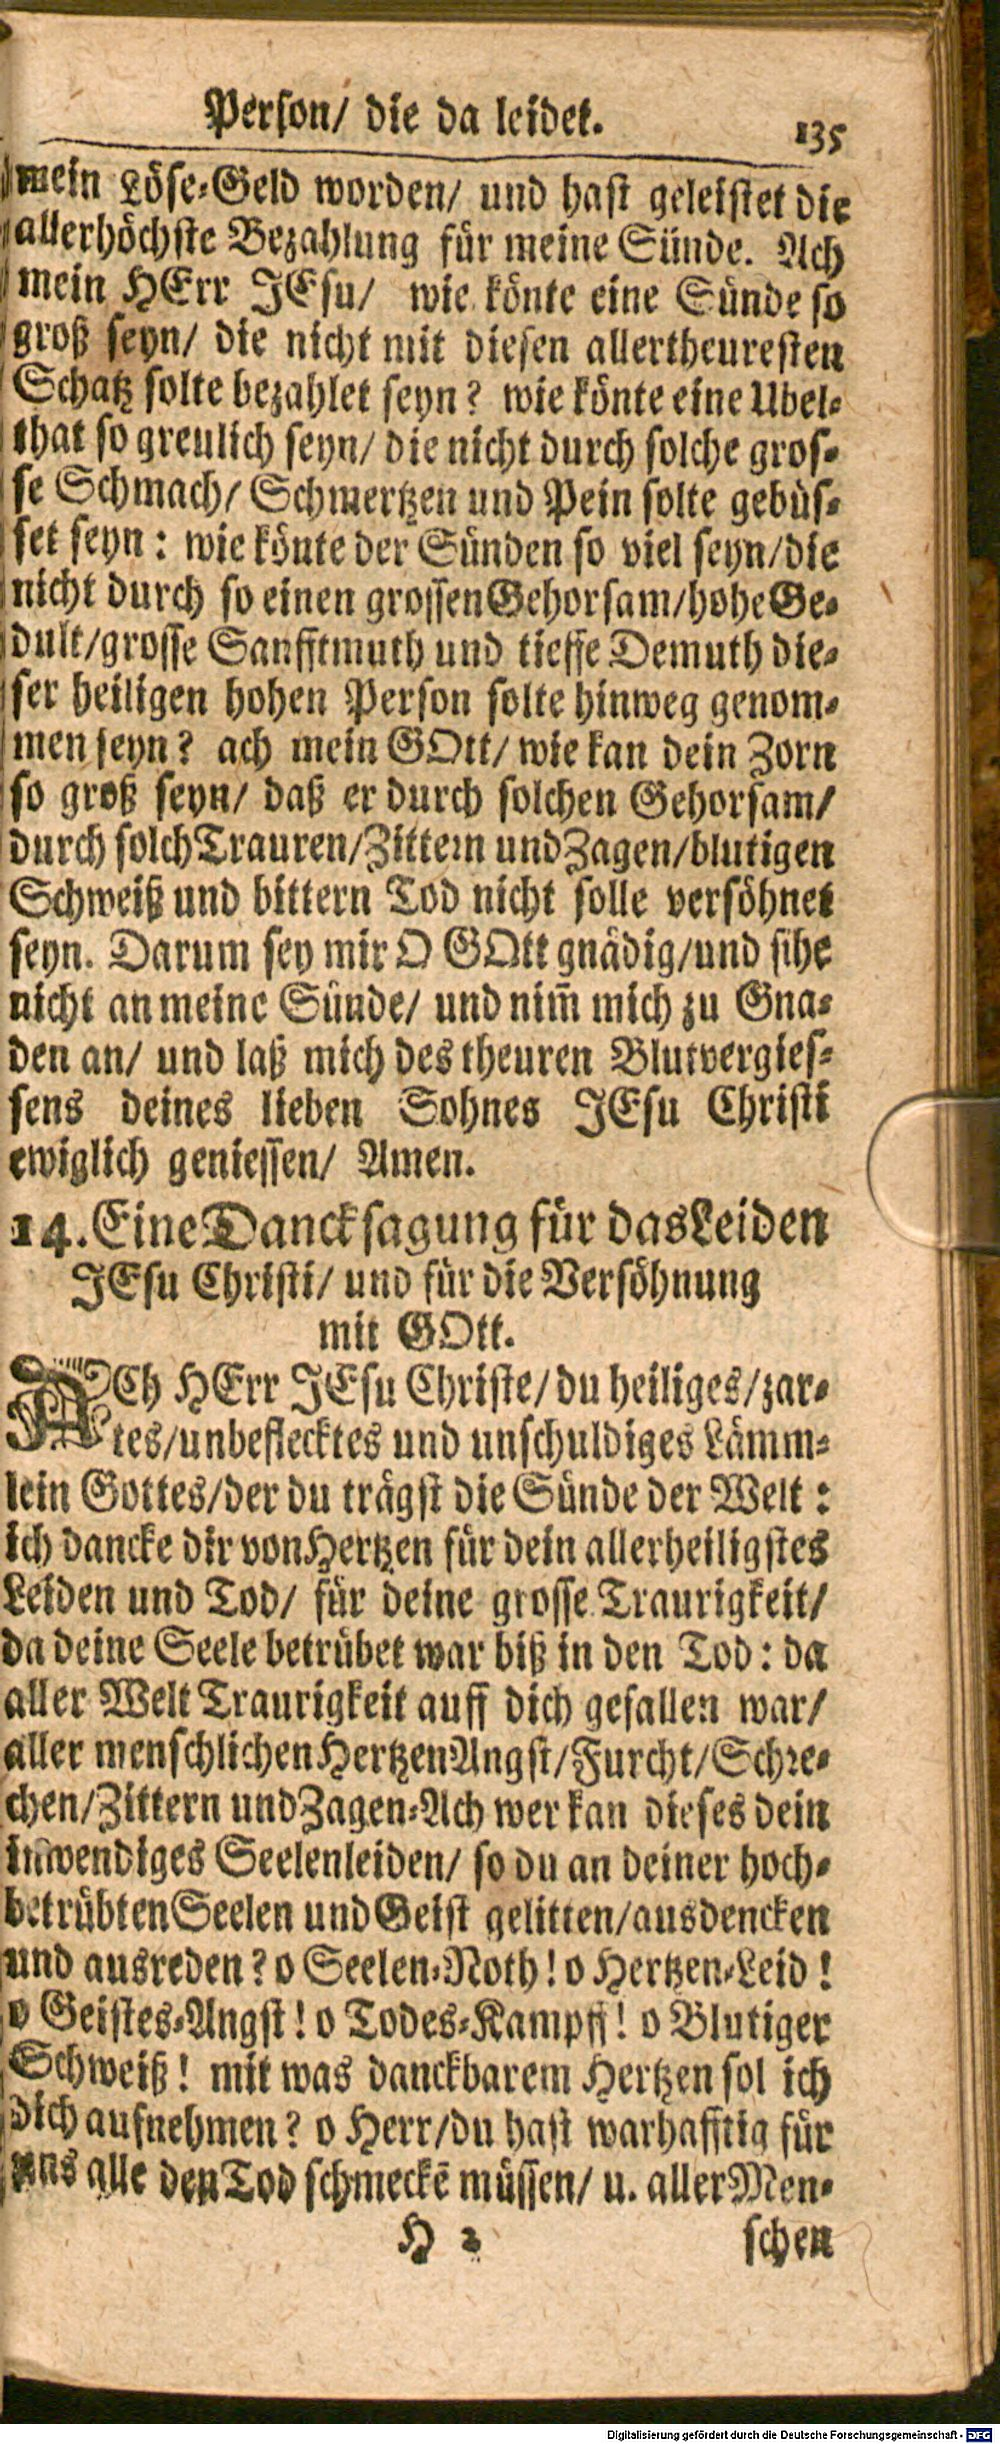 Person/ die da leidet. 135
mein Löse-Geld worden/ und hast geleistet die
allerhöchste Bezahlung für meine Sünde. Ach
mein HErr JEsu/ wie könte eine Sünde so
groß seyn/ die nicht mit diesen allertheuresten
Schatz solte bezahlet seyn? wie könte eine Ubel-
that so greulich seyn/ die nicht durch solche gros-
se Schmach/ Schmertzen und Pein solte gebüs-
set seyn: wie könte der Sünden so viel seyn/die
nicht durch so einen grossen Gehorsam/hohe Ge-
dult/grosse Sanfftmuth und tieffe Demuth die-
ser heiligen hohen Person solte hinweg genom-
men seyn? ach mein GOtt/ wie kan dein Zorn
so groß seyn/ daß er durch solchen Gehorsam/
durch solch Trauren/Zittern und Zagen/blutigen
Schweiß und bittern Tod nicht solle versöhnet
seyn. Darum sey mir O GOtt gnädig/und sihe
nicht an meine Sünde/ und nim̃ mich zu Gna-
den an/ und laß mich des theuren Blutvergies-
sens deines lieben Sohnes JEsu Christi
ewiglich geniessen/ Amen.
14. Eine Dancksagung für das Leiden
JEsu Christi/ und für die Versöhnung
mit GOtt.
ACh HErr JEsu Christe/ du heiliges/zar-
tes/unbeflecktes und unschuldiges Lämm-
lein Gottes/der du trägst die Sünde der Welt:
ich dancke dir von Hertzen für dein allerheiligstes
Leiden und Tod/ für deine grosse Traurigkeit/
da deine Seele betrübet war biß in den Tod: da
aller Welt Traurigkeit auff dich gefallen war/
aller menschlichen Hertzen Angst/Furcht/Schre-
chen/Zittern und Zagen-Ach wer kan dieses dein
inwendiges Seelenleiden/ so du an deiner hoch-
betrübten Seelen und Geist gelitten/ausdencken
und ausreden? o Seelen-Noth! o Hertzen-Leid!
o Geistes-Angst! o Todes-Kampff! o Blutiger
Schweiß! mit was danckbarem Hertzen sol ich
dich aufnehmen? o Herr/du hast warhafftig für
uns alle den Tod schmeckē müssen/ u. aller Men-
H 2 schen
Digitalisierung gefördert durch die Deutsche Forschungsgemeinschaft - DFG